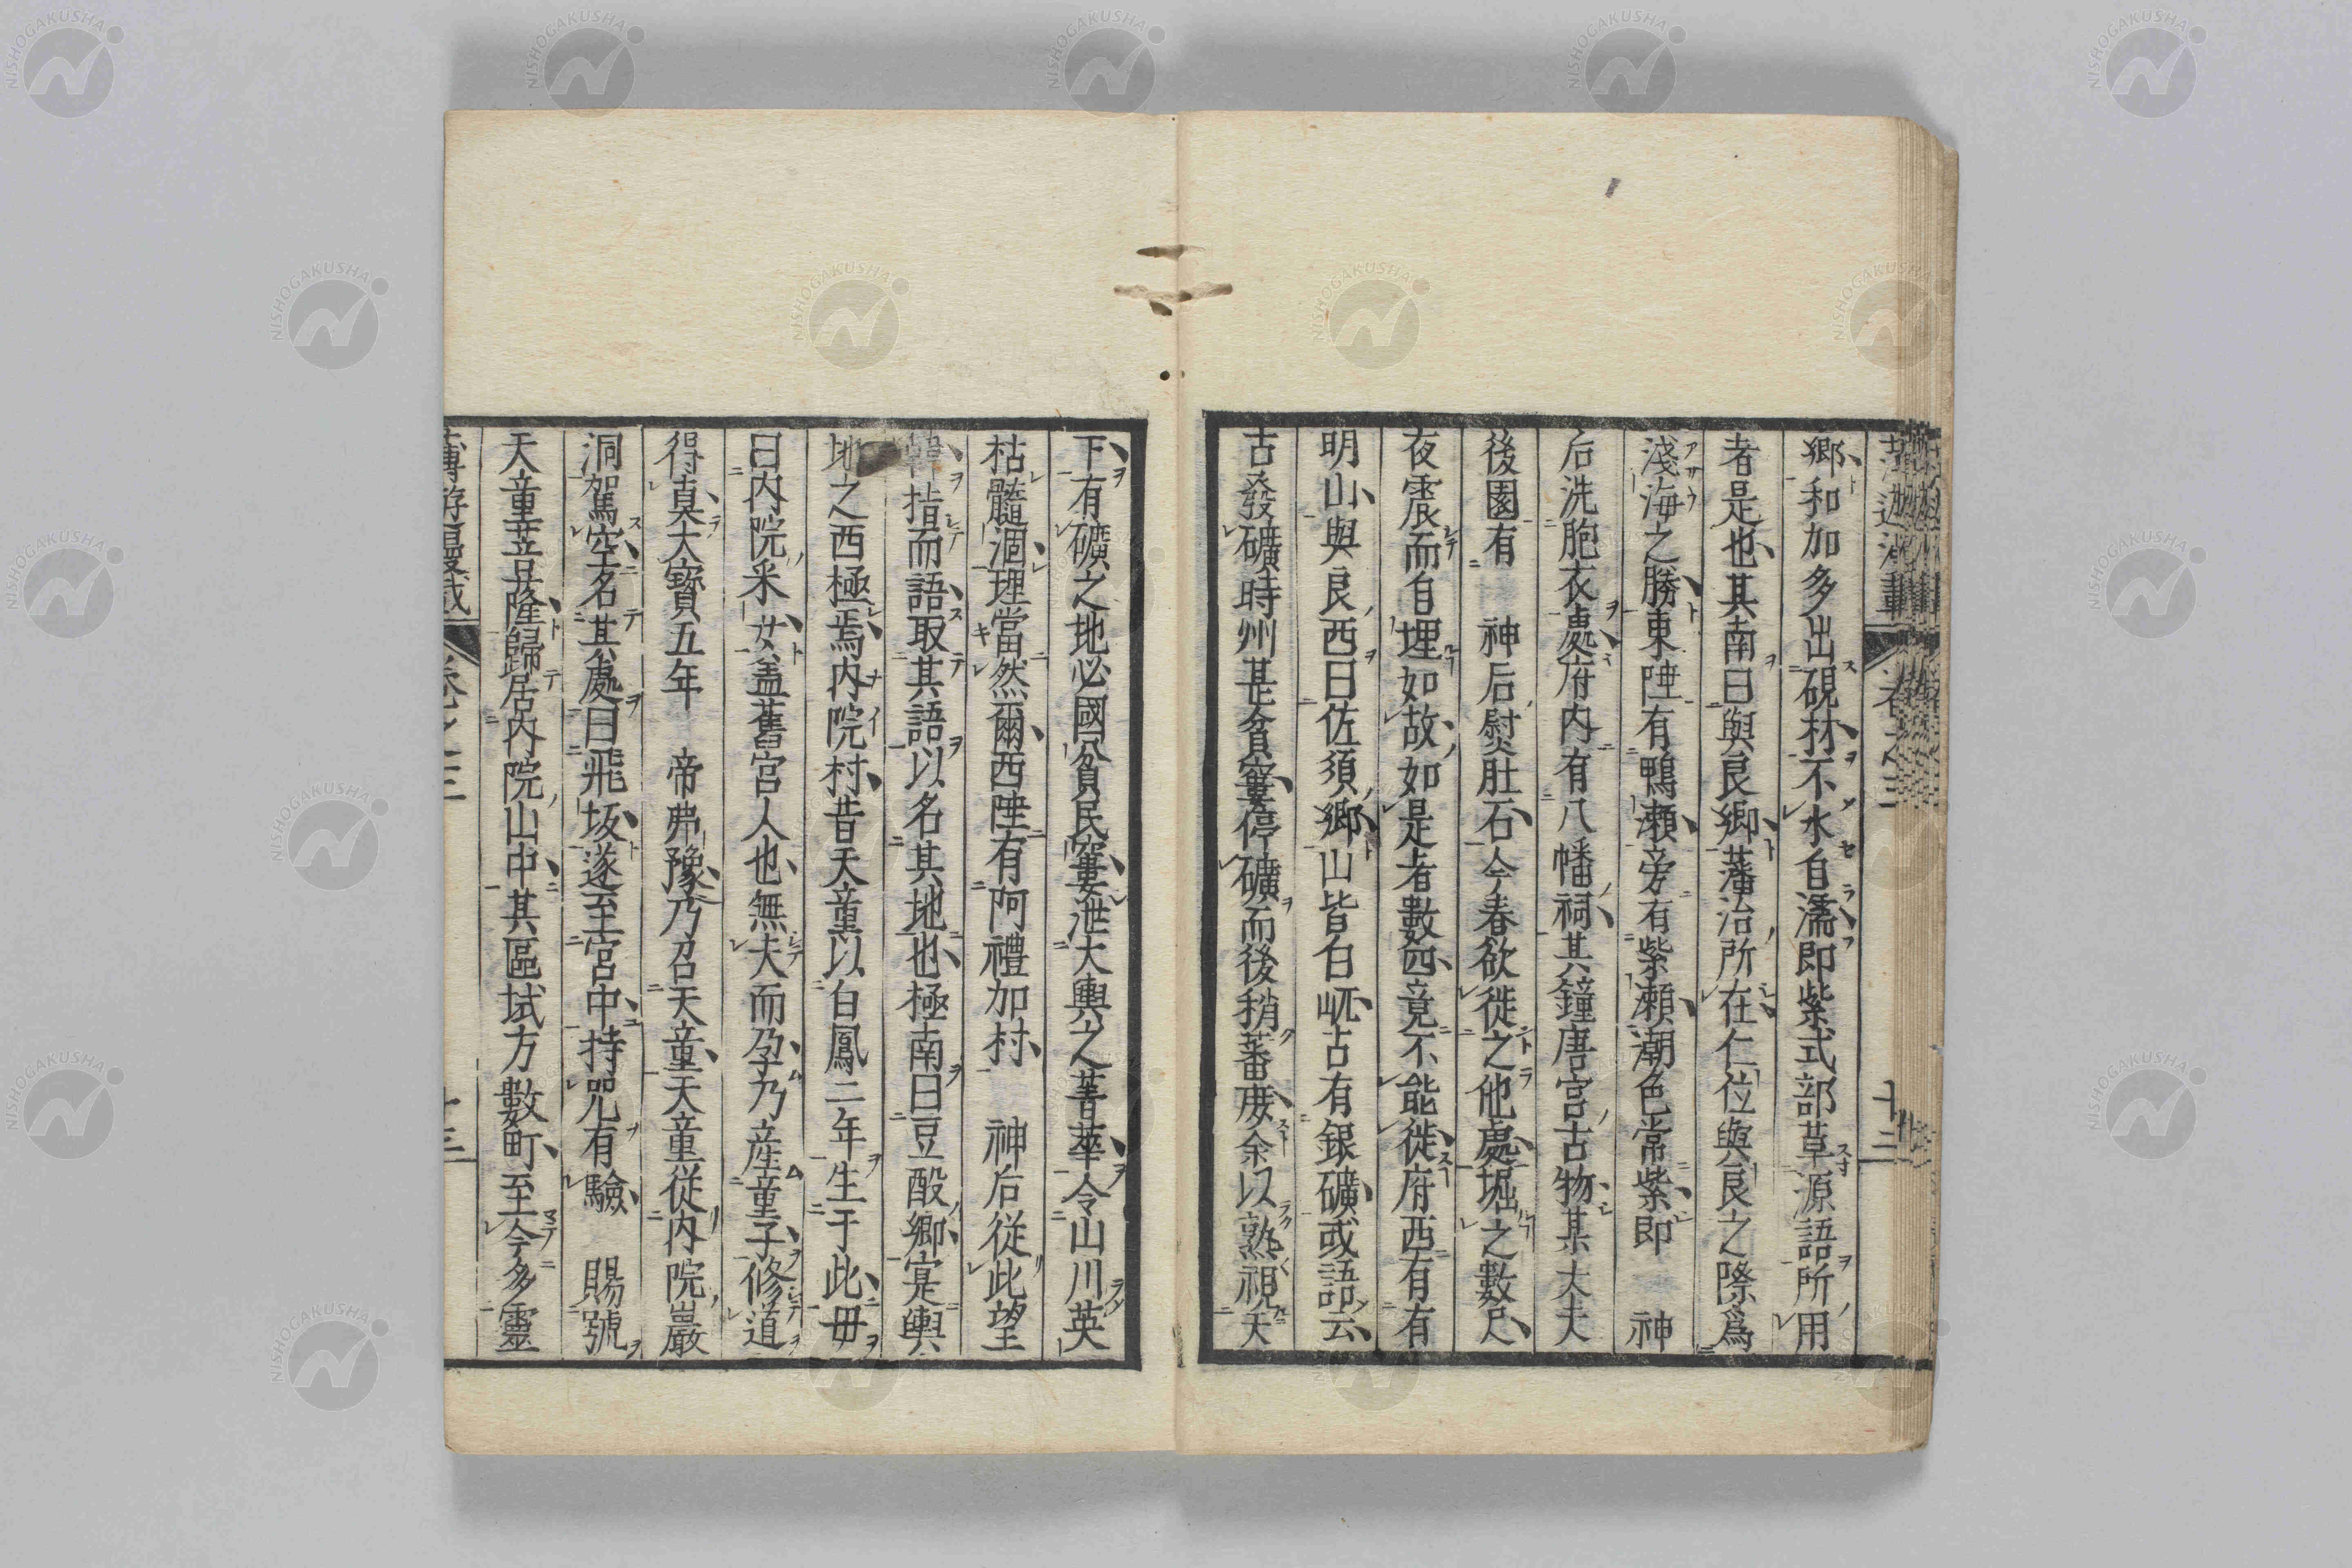 鄉和加多出硯材不水自濡即紫式部草源語所用
者是也其南曰與良鄉藩治所在仁位與良之際爲
淺海之勝東陲有鴨瀨旁有紫瀨潮色常紫即　神
后洗胞衣處府内有八幡祠其鐘唐宮古物某大夫
後園有　神后慰肚石今春欲徙之他處堀之數尺
夜震而自埋如故如是者數四竟不能徙府西有有
明山與良西曰佐須鄉山皆白㟁古有銀礦或語云
古發礦時州甚貧窶停礦而後稍蕃庶余以熟視天
下有礦之地必國貧民窶泄大輿之菁華令山川英
枯髓涸理當然爾西陲有阿禮加村　神后從此望
韓指而語取其語以名其地也極南曰豆酘鄉寔輿
地之西極焉内院村昔天童以白鳳二年生于此毋
曰内院釆女盖舊宮人也無夫而孕乃産童子修道
得真大寶五年　帝弗豫乃召天童天童從内院巖
洞駕空名其處曰飛坂遂至宮中持咒有驗　賜號
天童菩薩歸居内院山中其區域方數町至今多靈
卷之三
十三